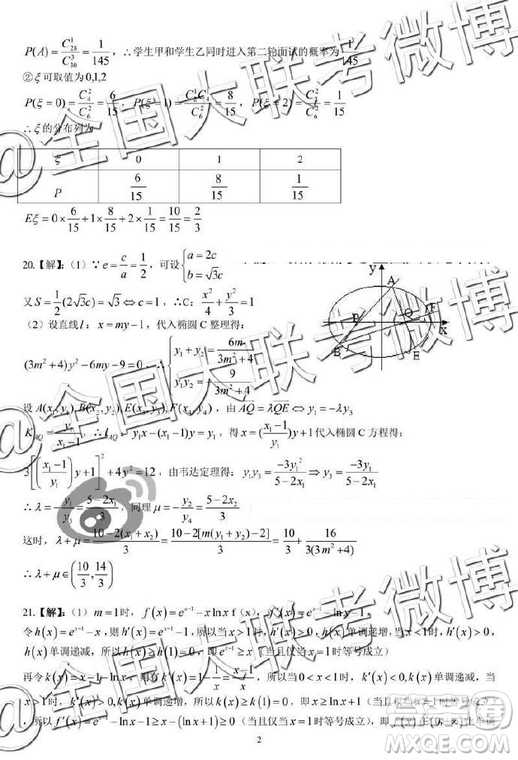 P(A)=C_{28}^{1}/C_{30}^{3}=1/145，∴学生甲和学生乙同时进入第二轮面试的概率为1/145
②ξ可取值为0,1,2
P(ξ=0)=C_{4}^{2}/C_{6}^{2}=6/15，P(ξ=1)=8/15，P(ξ=2)=1/15
∴ξ的分布列为
ξ 0 1 2
P 6/15 8/15 1/15
Eξ=0×6/15+1×8/15+2×1/15=10/15=2/3
20.【解】：（1）∵e=c/a=1/2，可设{a=2c b=√3c
又S=1/2(2√3c)=√3⇔c=1，∴C：x²/4+y²/3=1
（2）设直线l：x=my-1，代入椭圆C整理得：
(3m²+4)y²-6my-9=0，∴{y₁+y₂=6m/(3m²+4) 9/(3m²+4)
设A(x₁,y₁),B(x₂,y₂),E(x₃,y₃),F(x₄,y₄)，由AQ=λQE⇔y₁=-λy₃
K_{AQ}=y₁/(x₁-1)，∴l_{AQ}：y₁x-(x₁-1)y=y₁，得x=(x₁-1)/y₁ 代入椭圆C方程得：
3[((x₁-1)/y₁)y+1]²+4y²=12，由韦达定理得：y₁y₃=-3y₁²/(5-2x₁)⇔y₃=-3y₁/(5-2x₁)
∴λ=-y₁/y₃=(5-2x₁)/3，同理μ=-y₂/y₄=(5-2x₂)/3
这时，λ+μ=(10-2(x₁+x₂))/3=(10-2[m(y₁+y₂)-2])/3=10/3+16/(3(3m²+4))
∴λ+μ∈(10/3,14/3]
21.【解】：（1）m=1时，f(x)=e^{x-1}-xlnx f（x），f′(x)=e^{x-1}-lnx-1，
令h(x)=e^{x-1}-x，则h′(x)=e^{x-1}-1，所以当0<x<1时，h′(x)<0，h(x)单调递增，当x>1时，h′(x)>0，
h(x)单调递减，所以h(x)≥h(1)=0，即e^{x-1}≥x（当且仅当x=1时等号成立）
再令k(x)=x-1-lnx，则k′(x)=1-1/x=(x-1)/x，所以当0<x<1时，k′(x)<0，k(x)单调递减，当
x>1时，k′(x)>0，k(x)单调递增，所以k(x)≥k(1)=0，即x≥lnx+1（当且仅当x=1时等号成立）
，所以f′(x)=e^{x-1}-lnx-1≥x-(lnx+1)≥0（当且仅当x=1时等号成立），即
2
y
A
Q
F
x
B
E
@全国大联考微博
@全国大联考微博